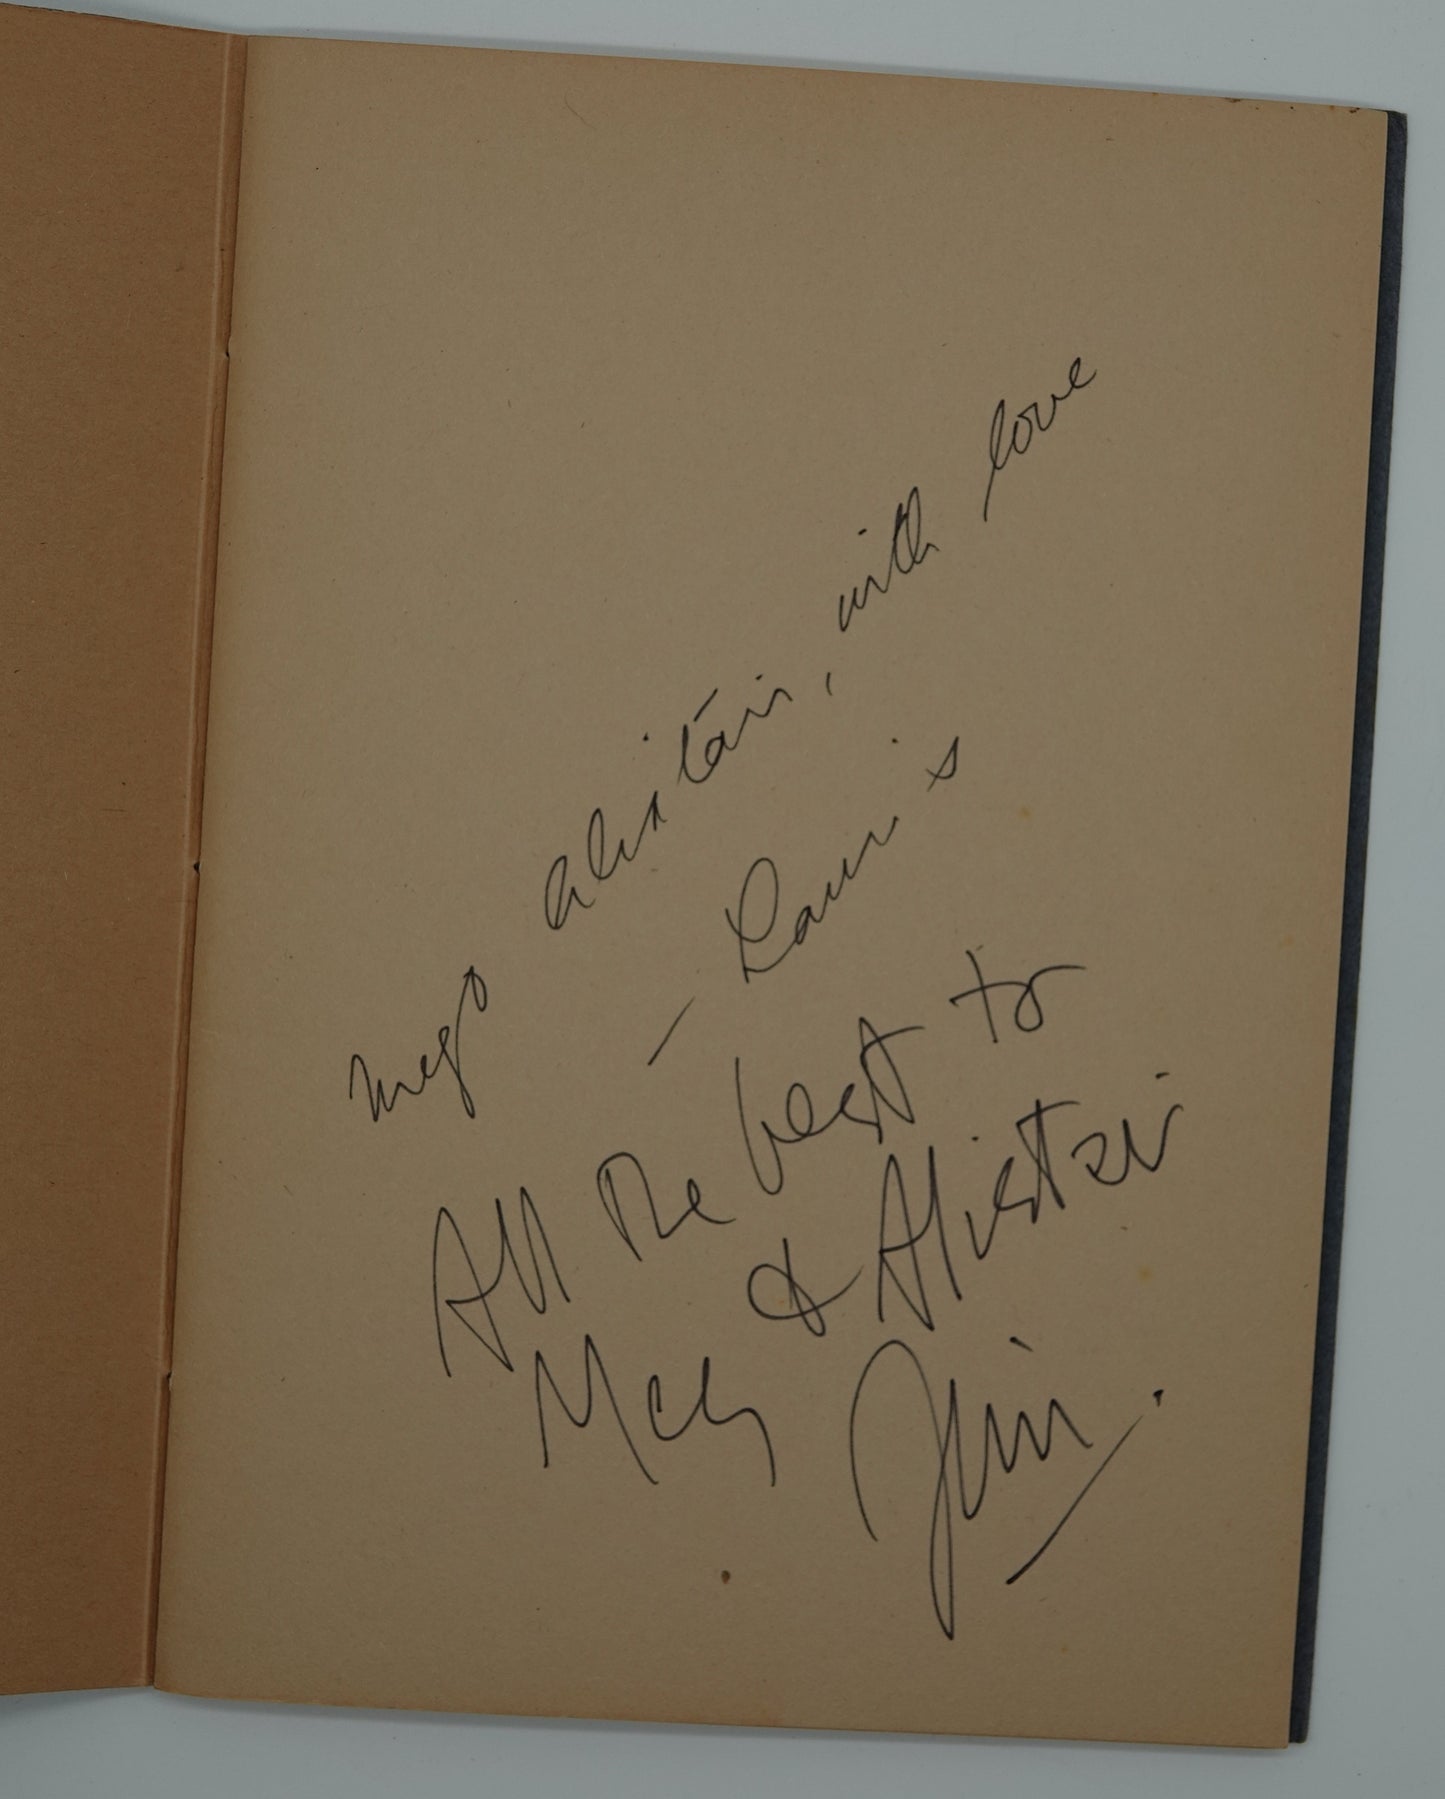 Meg alistair, with love
— Lauris
All the best to
Meg & Alistair
Jim.